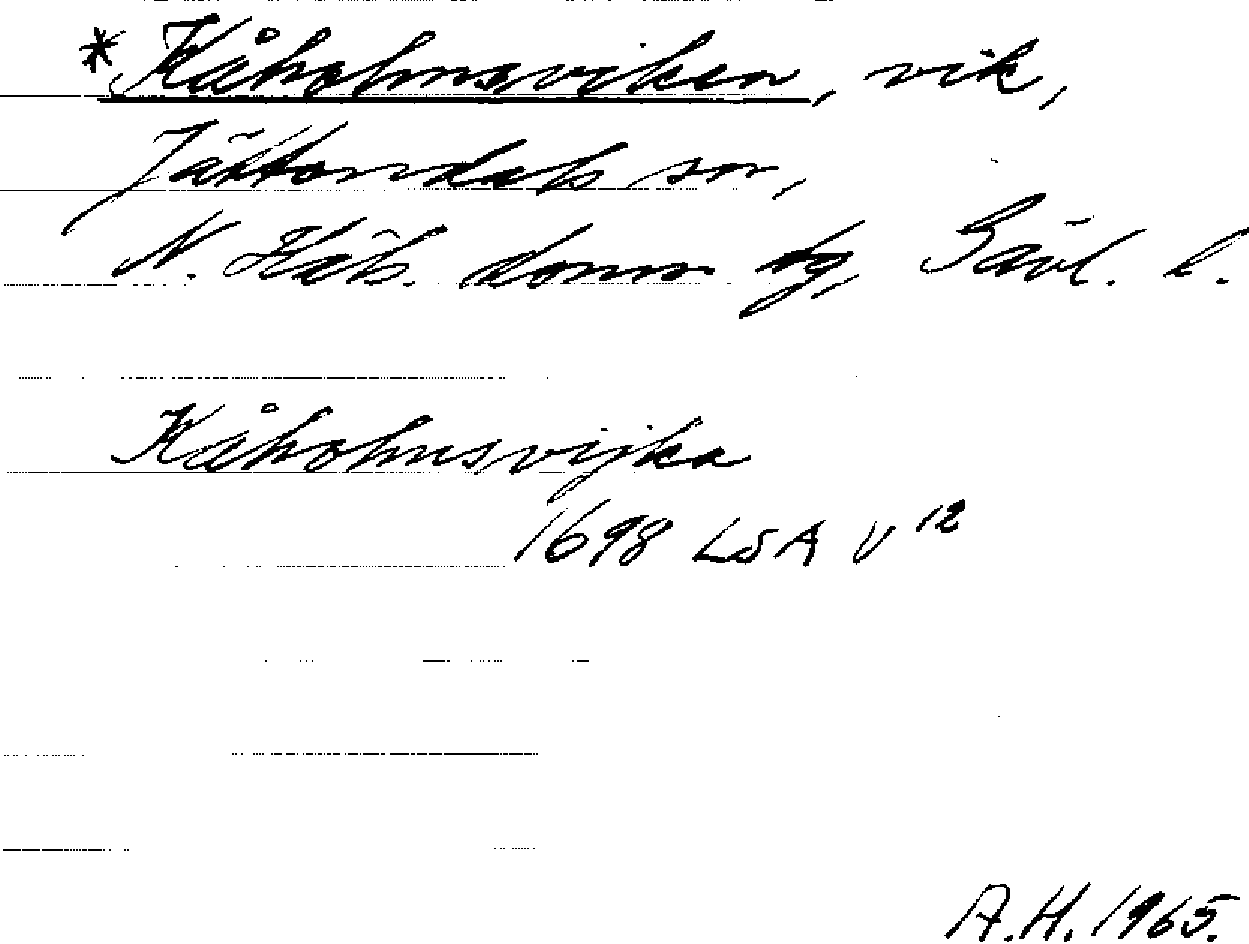 *Kåholmsviken, vik,
Jättendals sn,
N. Häls. doms tg, Gävl. l.
Kåholmsvijka
1698 LSA V 12
A.H. 1965.